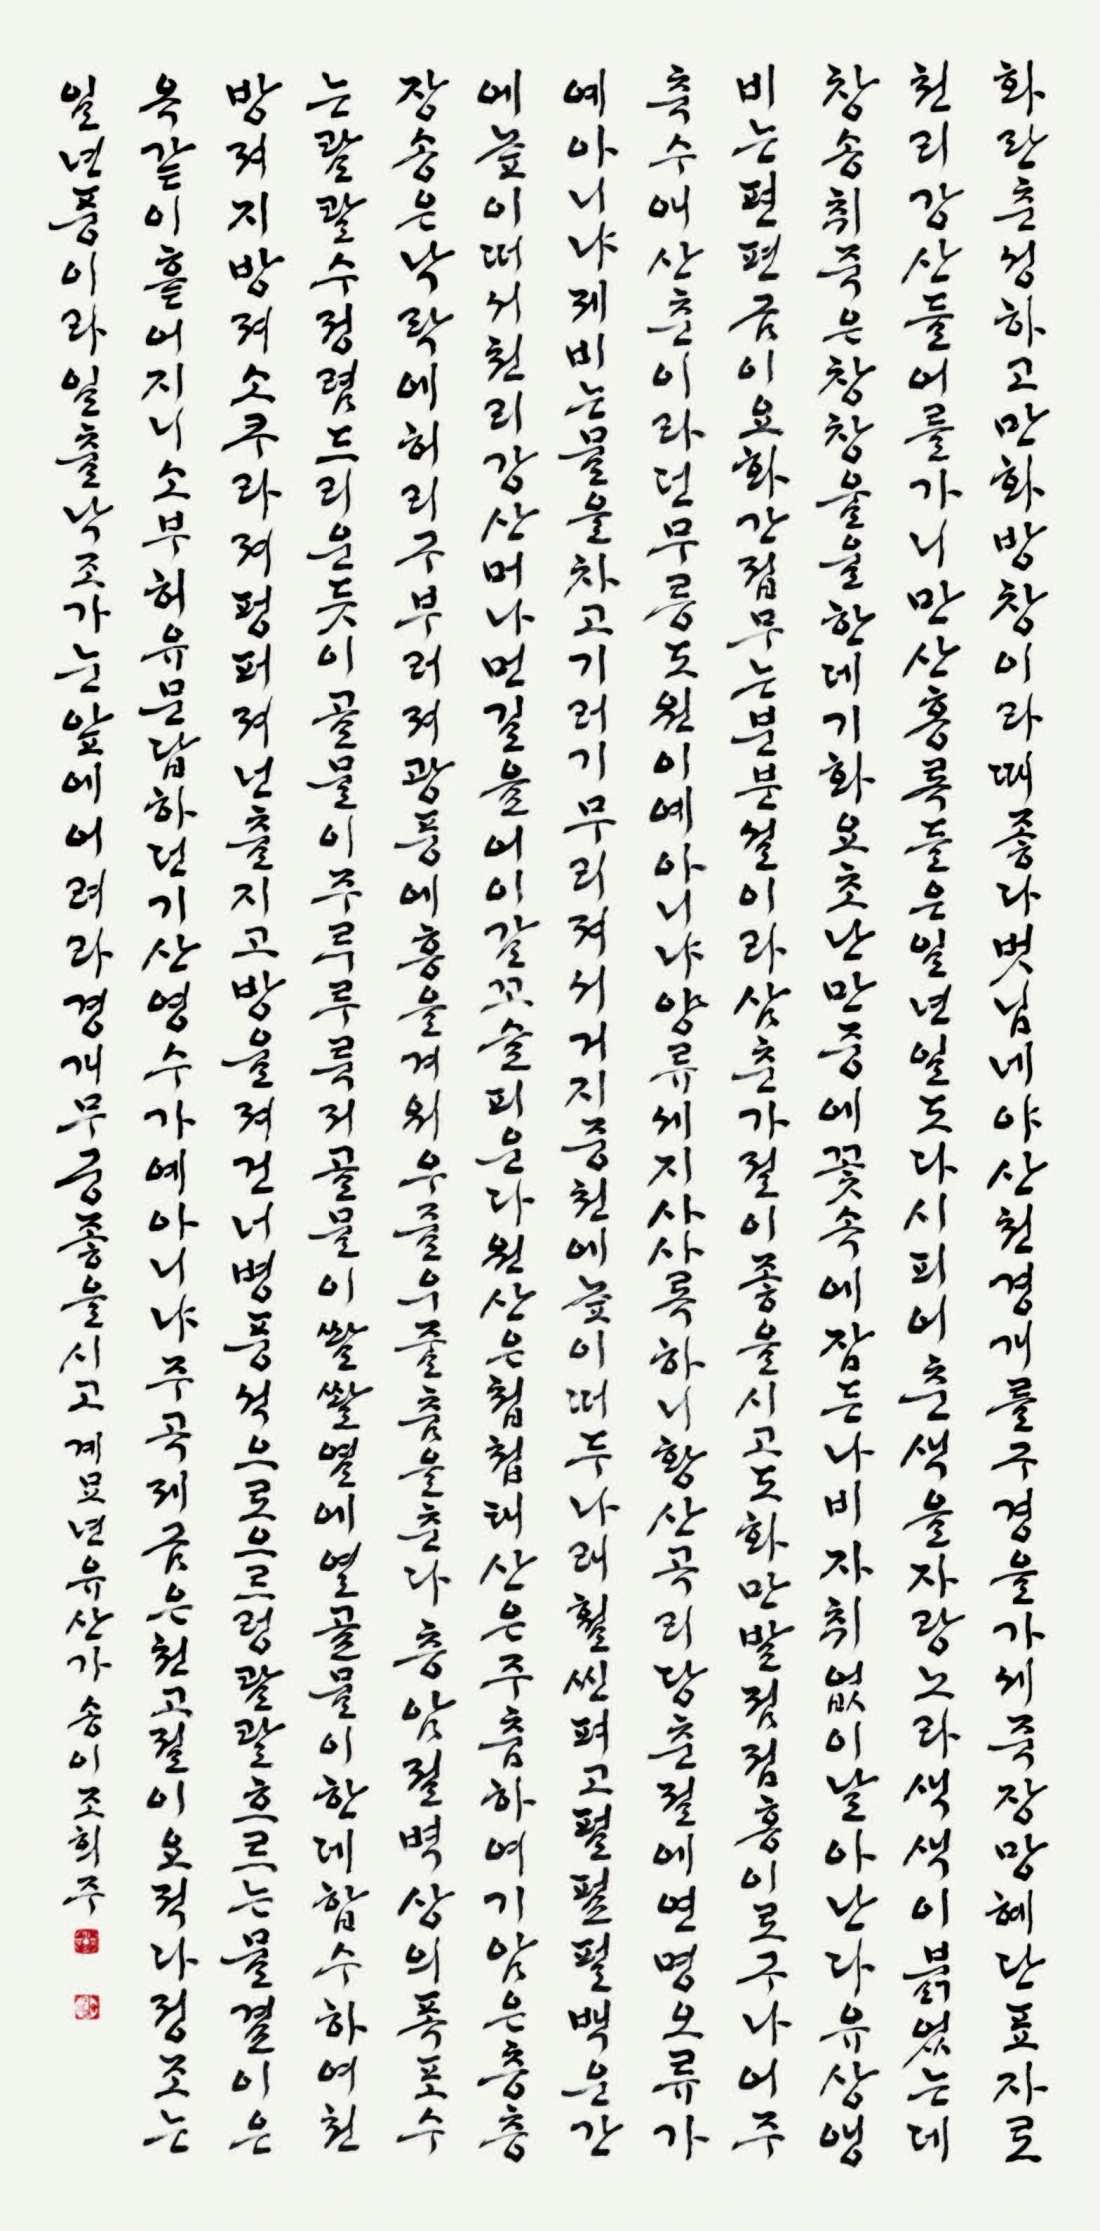 화란춘성하고만화방창이라때좋다벗님네야산천경개를구경을가세죽장망혜단표자로
천리강산들어를가니만산홍록들은일년일도다시피어춘색을자랑노라색색이붉었는데
창송취죽은창창울울한데기화요초난만중에꽃속에잠든나비자취없이날아난다유상앵
비는편편금이요화간접무는분분설이라삼춘가절이좋을시고도화만발점점홍이로구나어주
축수애산춘이라던무릉도원이예아니냐양류세지사사록하니황산곡리당춘절에연명오류가
예아니냐제비는물을차고기러기무리져서거지중천에높이떠두나래훨씬펴고펄펄펄백운간
에높이떠서천리강산머나먼길을어이갈꼬슬피운다원산은첩첩태산은주춤하여기암은층층
장송은낙락에허리구부러져광풍에흥을겨워우줄우줄춤을춘다층암절벽상의폭포수
는콸콸수정렴드리운듯이골물이주루루룩저골물이쏼쏼열에열골물이한데합수하여천
방져지방져소쿠라져평퍼져넌출지고방울져건너병풍석으로으르렁콸콸흐르는물결이은
옥같이흩어지니소부허유문답하던기산영수가예아니냐주곡제금은천고절이요적다정조는
일년풍이라일출낙조가눈앞에어려라경개무궁좋을시고계묘년유산가송이조희주